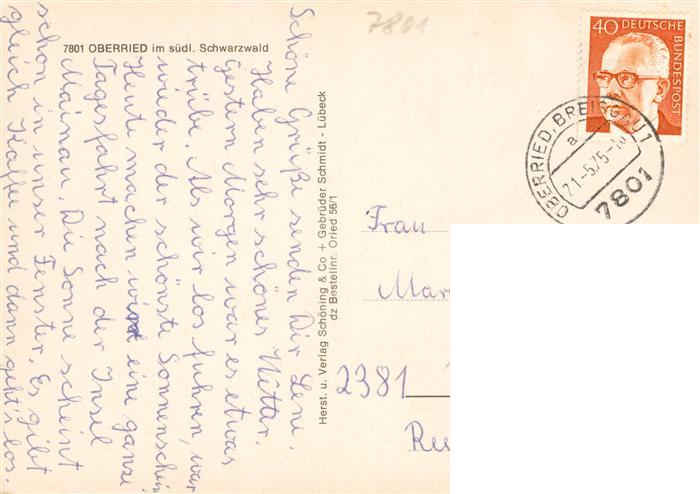 7801
7801 OBERRIED im südl. Schwarzwald
Schöne Grüße senden Dir Leni.
Haben sehr schönes Wetter.
Gestern Morgen war es etwas
trübe. Als wir los fuhren, war
wieder der schönste Sonnenschein
Heute machen wir eine ganze
Tagesfahrt nach der Insel
Mainau. Die Sonne scheint
schon in unser Fenster. Es gibt
gleich Kaffee und dann geht's los.
Herst. u. Verlag Schöning & Co + Gebrüder Schmidt - Lübeck
dz Bestellnr. Oried 56/1
40 DEUTSCHE
BUNDESPOST
OBERRIED, BREISGAU 1
a
21-5.75-10
7801
Frau
Mar
2381
Re